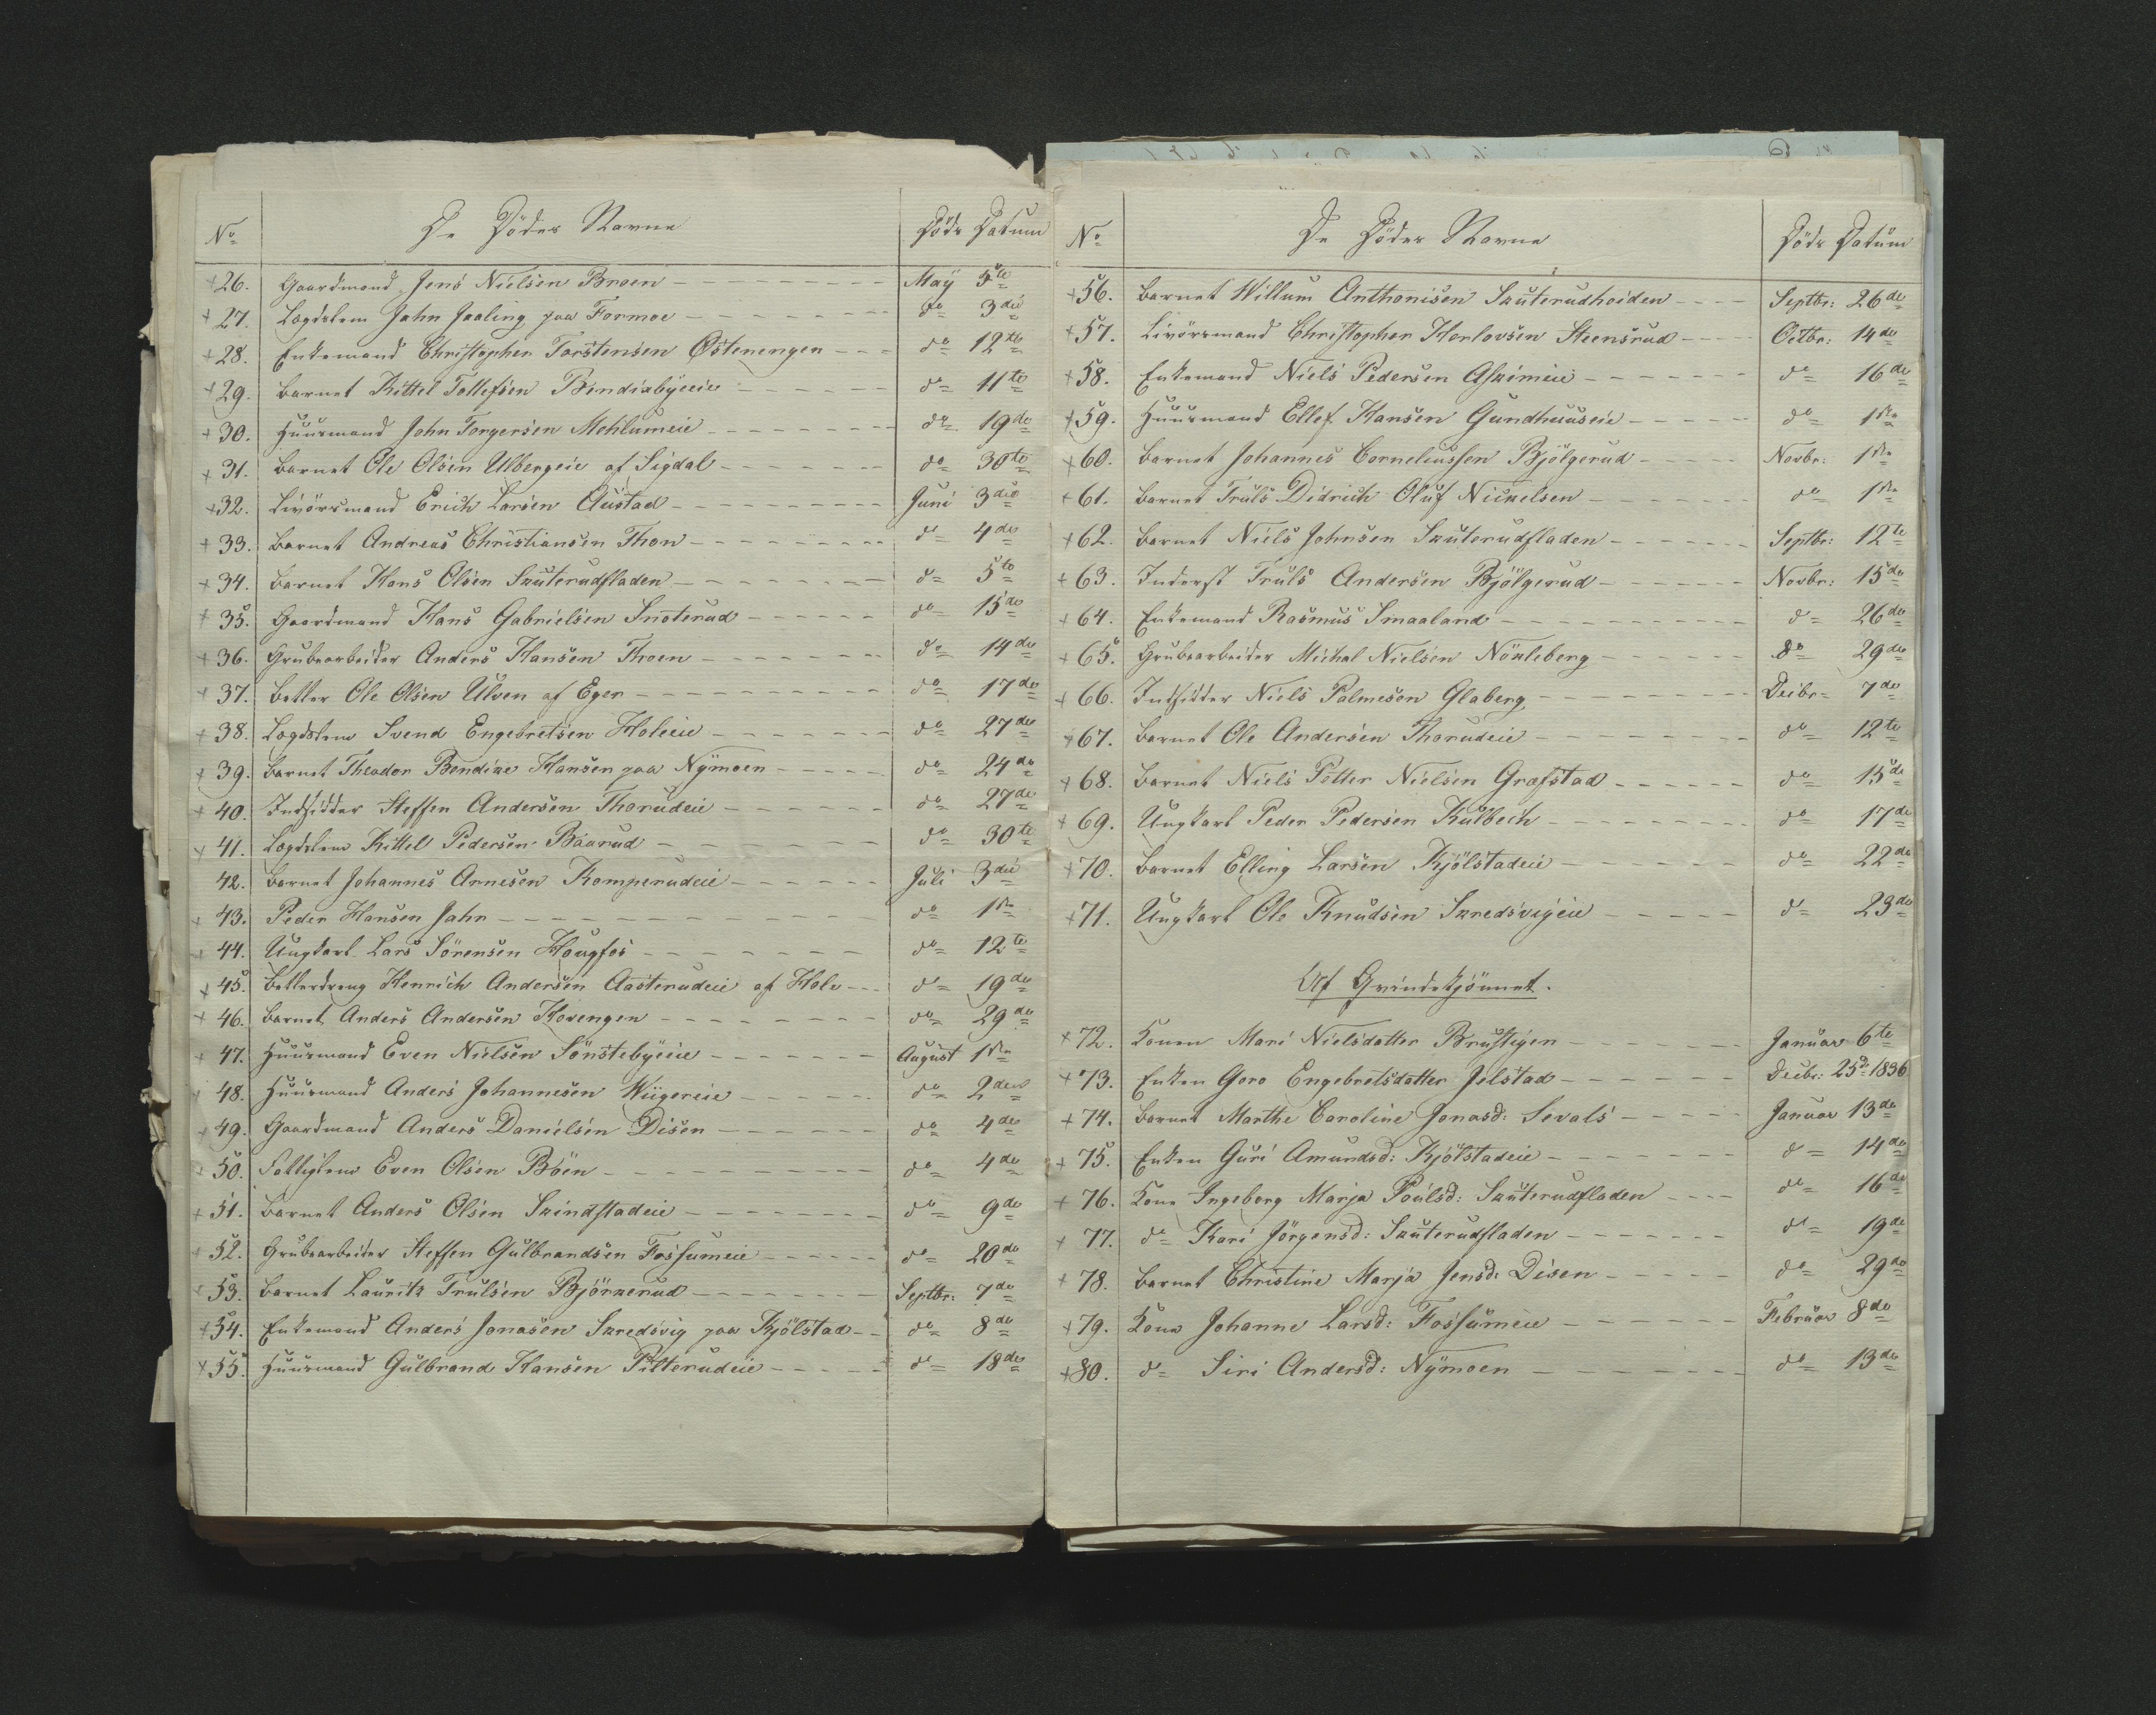 No De Dödes Navne Döds Datum
+26. Gaardmand Jens Nielsen Broen May 5te
+27. Logdslem Jahn Jaaling paa Formoe do 3die
+28. Enkemand Christopher Torstensen Østenengen do 12te
+29. Barnet Kittel Tollefsen Bindixbÿeeie do 11te
+30. Huusmand John Torgersen Mehlumeie do 19de
+31. Barnet Ole Olsen Ulbergeie af Sigdal do 30te
+32. Livörsmand Erich Larsen Austad Juni 3die
+33. Barnet Andreas Christiansen Thon do 4de
+34. Barnet Hans Olsen Skuterudfladen do 5te
+35. Gaardmand Hans Gabrielsen Snoterud do 15de
+36. Grubearbeider Anders Hansen Thoen do 14de
+37. Betler Ole Olsen Ulven af Eger do 17de
+38. Logdslem Svend Engebretsen Holeeie do 27de
+39. Barnet Theodor Bendixe Hansen paa Nÿmoen do 24de
+40. Indsidder Steffen Andersen Thorudeie do 27de
+41. Logdslem Kittel Pedersen Baarud do 30te
42. Barnet Johannes Arnesen Komperudeie Juli 3die
+43. Peder Hansen Jahn do 1ste
+44. Ungkarl Lars Sörensen Hougfos do 12te
+45. Betlerdreng Henrich Andersen Aasterudeie af Hole do 19de
+46. Barnet Anders Andersen Kovengen do 29de
+47. Huusmand Even Nielsen Sönstebÿeeie August 1ste
+48. Huusmand Anders Johannesen Wiigereie do 2den
+49. Gaardmand Anders Danielsen Disen do 4de
+50. Fattiglem Even Olsen Böen do 4de
+51. Barnet Anders Olsen Skindstadeie do 9de
+52. Grubearbeider Steffen Gulbrandsen Fossumeie do 20de
+53. Barnet Lauritz Trulsen Björkerud Septbr: 7de
+54. Enkemand Anders Jonasen Skredsvig paa Kjölstad do 8de
+55. Huusmand Gulbrand Hansen Pitterudeie do 18de
No De Dödes Navne Döds Datum
+56. Barnet Willum Anthonisen Skuterudheiden Septbr: 26de
+57. Livörsmand Christopher Herlovsen Steensrud Octbr: 14de
+58. Enkemand Niels Pedersen Askimeie do 16de
+59. Huusmand Ellef Hansen Gundhuuseie do 1ste
+60. Barnet Johannes Corneliussen Bjölgerud Novbr: 1ste
+61. Barnet Truls Didrich Oluf Nickelsen do 1ste
+62. Barnet Niels Johnsen Skuterudfladen Septbr: 12te
+63. Inderst Truls Andersen Bjölgerud Novbr: 15de
+64. Enkemand Rasmus Smaaland do 26de
+65. Grubearbeider Michal Nielsen Nökleberg do 29de
+66. Indsidder Niels Palmesen Glaberg Decbr 7de
+67. Barnet Ole Andersen Thorudeie do 12te
+68. Barnet Niels Petter Nielsen Grafstad do 15de
+69. Ungkarl Peder Pedersen Kulbech do 17de
+70. Barnet Elling Larsen Kjölstadeie do 22de
+71. Ungkarl Ole Knudsen Skredsvigeie do 23de
Af Qvindekjönnet.
+72. Konen Mari Nielsdatter Brustigen Januar 6te
+73. Enken Goro Engebretsdatter Jelstad Decbr: 25de 1836
+74. Barnet Marthe Caroline Jonasd: Sevals Januar 13de
+75. Enken Guri Amundsd: Kjölstadeie do 14de
+76. Kone Ingeborg Marja Poulsd: Skuterudfladen do 16de
+77. do Kari Jörgensd: Skuterudfladen do 19de
+78. Barnet Christine Marja Jensd: Disen do 29de
+79. Kone Johanne Larsd: Fossumeie Februar 8de
+80. do Siri Andersd: Nÿmoen do 13de